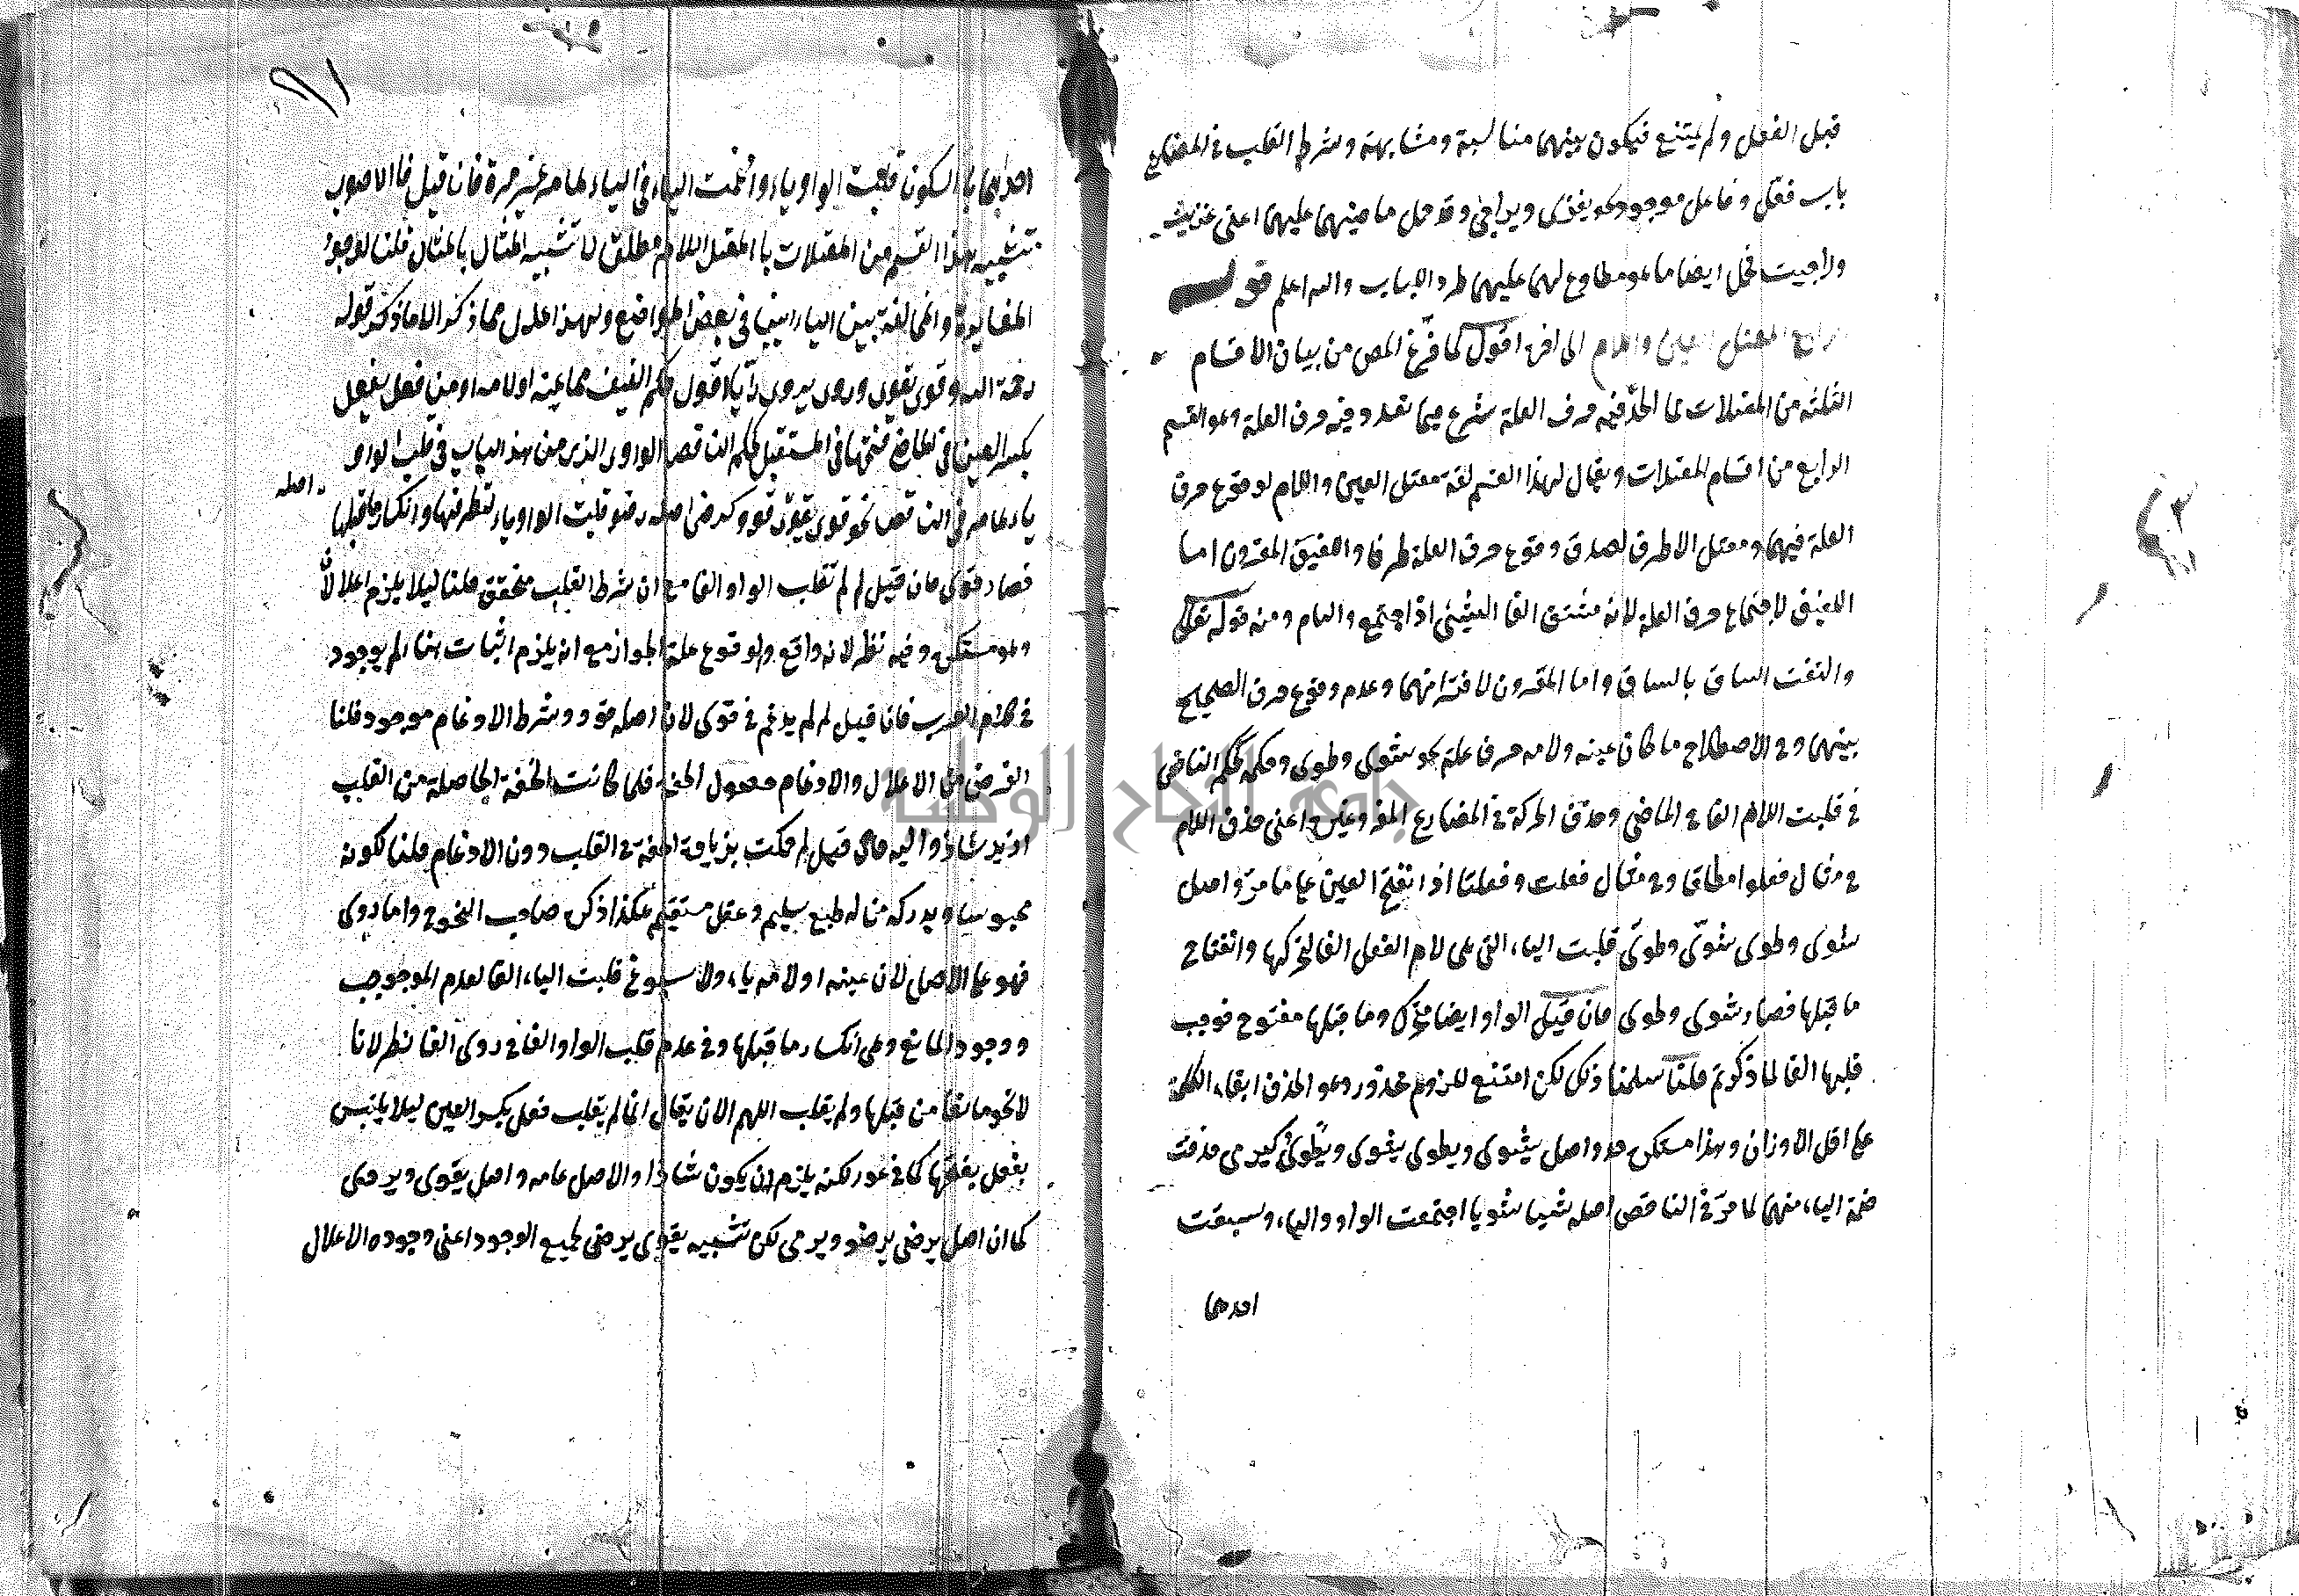 قبل الفعل ولم يمتنع فيكون بينهما مناسبة ومشابهة وشرط القلب في المضارع
باب فعل وفاعل موجود كو يغزى ويراجى وقد حمل ماضيهما عليهما اعنى غزيت
وراجيت فحمل ايضا ما هو مطاوع لهما عليهما طرد الباب والله اعلم قوله
الرابع المعتل العين واللام الى اخره اقول لما فرغ المص من بيان الاقسام
الثلثة من المعتلات لما اتحد فيه حرف العلة شرع فيما تعدد فيه حرف العلة وهو القسم
الرابع من اقسام المعتلات ويقال لهذا القسم لغة معتل العين واللام لوقوع حرف
العلة فيهما ومعتل الاطراف لصدق وقوع حرف العلة طرفا واللفيف المقرون اما
اللفيف لاجتماع حرف العلة لانه مشتق التف الشيئى اذا اجتمع والتام ومنه قوله تعالى
والتفت الساق بالساق واما المقرون لاقترانهما وعدم وقوع حرف الصحيح
بينهما وفي الاصطلاح ما كان عينه ولامه حرف علة نحو شوى وطوى وحكمه كحكم الناقص
في قلبت اللام الفا في الماضى وحذف الحركة في المضارع المفرد وغيره واعنى حذف اللام
في مثال فعلوا مطلقا وفي مثال فعلت وفعلتا اذا انفتح العين على ما مر واصل
شوى وطوى شوى وطوى قلبت الياء التى هى لام الفعل الفا لتحركها وانفتاح
ما قبلها فصار شوى وطوى فان قيل الواو ايضا متحرك وما قبلها مفتوح فوجب
قلبها الفا لما ذكرتم قلنا سلمنا ذلك لكن امتنع للزوم محذور وهو الحذف ابقاء الكلمة
على اقل الاوزان وهذا مستكره واصل يشوى ويطوى يشوى ويطوى كيرمى حذفت
ضمة الياء منهما لما مر في الناقص اصله شيا شويا اجتمعت الواو والياء وسبقت
احدهما
احدهما بالسكون قلبت الواو ياء وادغمت الياء في الياء لما مر غير مرة فان قيل فما الاصوب
تشبيه هذا القسم من المعتلات بالمعتل اللام مطلق لا تشبيه المثال بالمثال قلنا لوجود
المغايرة والمخالفة بين البابين في بعض المواضع ولهذا اعلال مما ذكر الا ما ذكر قوله
رحمة الله وقوى يقوى وروى يروى ريا اقول حكم اللفيف مما عينه او لامه او من فعل يفعل
بكسر العين في الماضي وفتحها في المستقبل كحكم الناقص الواوى الذى من هذا الباب في قلب الواو
ياء لما مر في الناقص نحو قوى يقوى قوو كرضى اصله رضو قلبت الواو ياء لتطرفها وانكسار ما قبلها
اصله
فصار قوى فان قيل لم لم تقلب الواو الفا مع ان شرط القلب متحقق قلنا ليلا يلزم اعلالان
وهو مستكره وفيه نظر لانه واقع ولوقوع علة الجواز مع انه يلزم اثبات بناء لم يوجد
في كلام العرب فان قيل لم لم يدغم في قوى لان اصله قوو وشرط الادغام موجود قلنا
الغرض من الاعلال والادغام حصول الخفة فلما كانت الخفة الحاصلة من القلب
ازيد شاذوا اليه فان قيل لم حكمت بزيادة الخفة في القلب دون الادغام قلنا لكونه
محبوسا ويدركه من له طبع سليم وعقل مستقيم هكذا ذكره صاحب النحوح واما روى
فهو على الاصل لان عينه او لامه ياء ولا يسوغ قلبت الياء الفا لعدم الموجب
ووجود المانع وهى انكسار ما قبلها وفي عدم قلب الواو الفا في روى الفا نظر لانا
لانحو مانعا من قبلها ولم يقلب اللهم الا ان يقال انما لم يقلب فعل بكسر العين ليلا يلتبس
بفعل بفتحها كما في عور لكنه يلزم ان يكون شاذا والاصل عامه واصل يقوى ويرمى
كما ان اصل يرضى يرضو ويرمى لكن تشبيه يقوى يرضى لجميع الوجود اعنى وجوده الاعلال
جامعة النجاح الوطنية